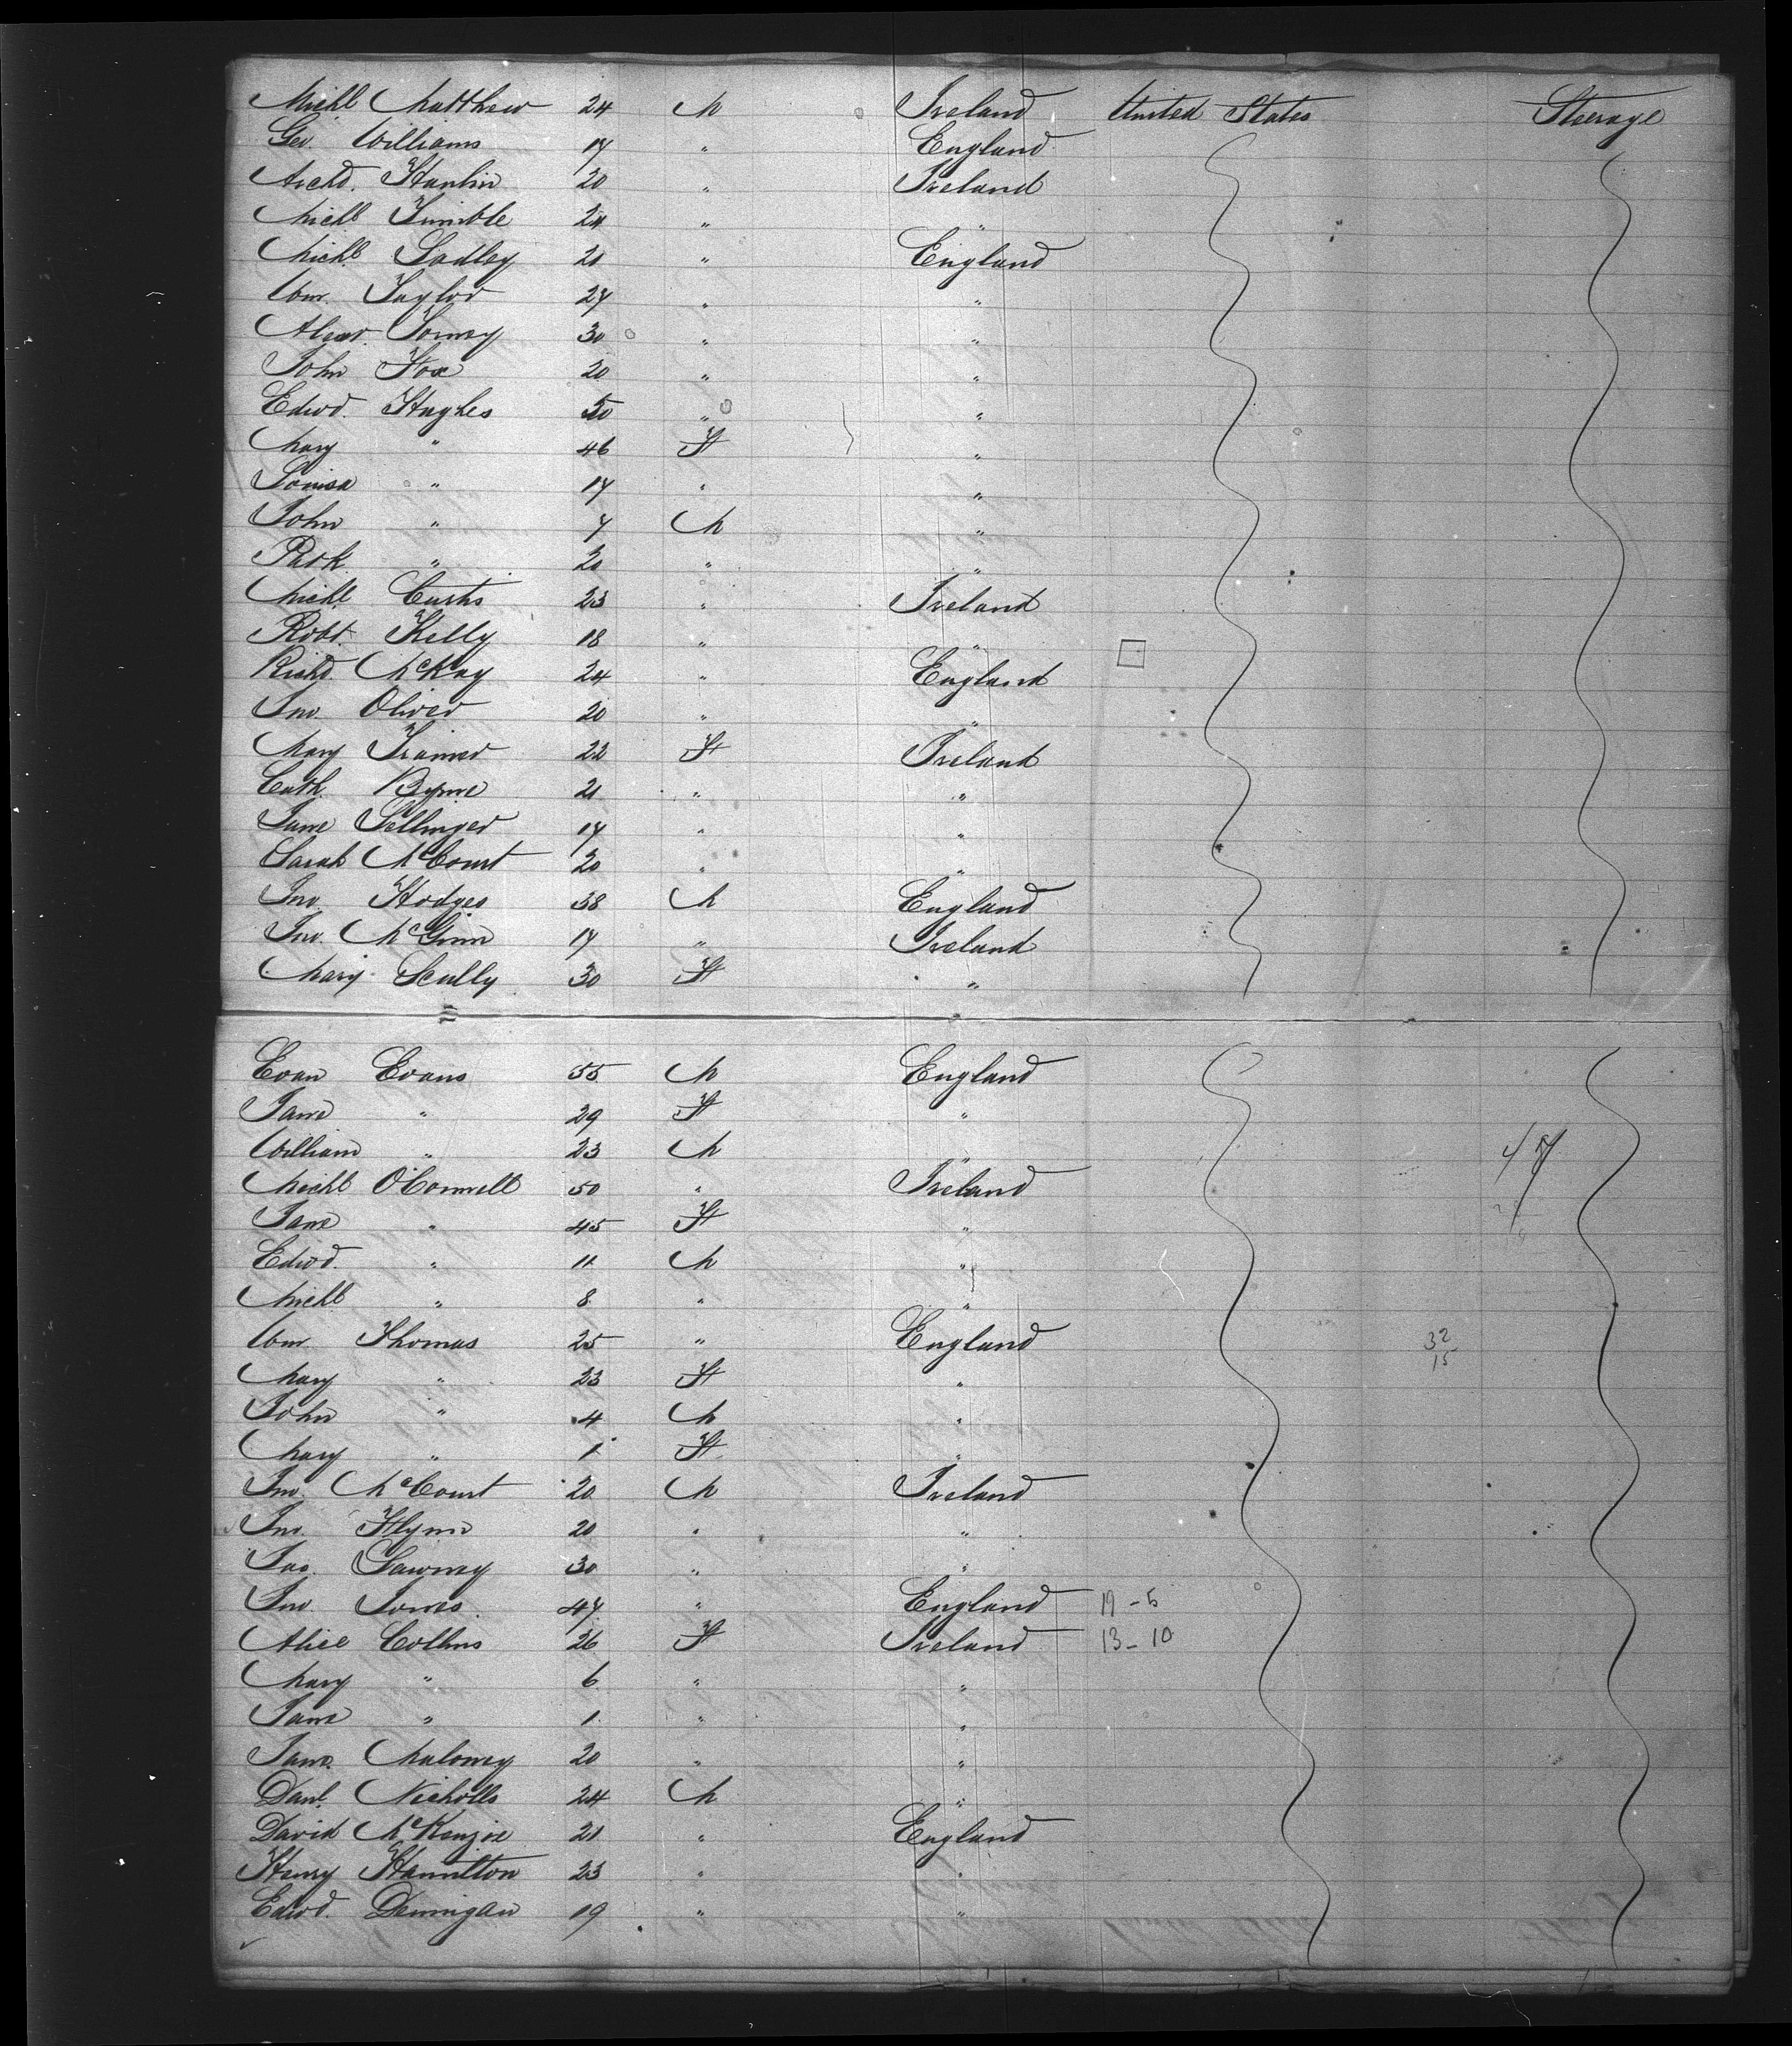 Michl Matthew 24 M Ireland United States Steerage
Geo. Williams 17 " England
Archd. Hanlin 20 " Ireland
Michl Trimble 24 " "
Michl Sadley 21 " England
Wm. Taylor 27 " "
Alexr. Torney 30 " "
John Fox 20 " "
Edwd. Hughes 50 " "
Mary " 46 F "
Louisa " 17 " "
John " 7 M "
Patk. " 20 " "
Michl. Curtis 23 " Ireland
Robt. Kelly 18 " "
Richd. McKay 24 " England
Jno. Oliver 20 " "
Mary Trainer 22 F Ireland
Cath. Byrne 21 " "
Jane Sellinger 17 " "
Sarah McCourt 20 " "
Jno. Hodges 38 M England
Jno. McGinn 17 " Ireland
Mary Scully 30 F "
Evan Evans 55 M England
Jane " 29 F "
William " 23 M " 47
Michl O'Connell 50 " Ireland
Jane " 45 F "
Edwd. " 11 M "
Michl " 8 " "
Wm. Thomas 25 " England 32
Mary " 23 F " 15
John " 4 M "
Mary " 1 F "
Jno. McCourt 20 M Ireland
Jno. Flynn 20 " "
Jas. Sawney 30 " "
Jno. Jones 47 " England 19-5
Alice Collins 26 F Ireland 13-10
Mary " 6 " "
Jane " 1 " "
Jane. Maloney 20 " "
Danl. Nicholls 24 M "
David McKenzie 21 " England
Henry Hamilton 23 " "
Edwd. Dennigan 19 " "